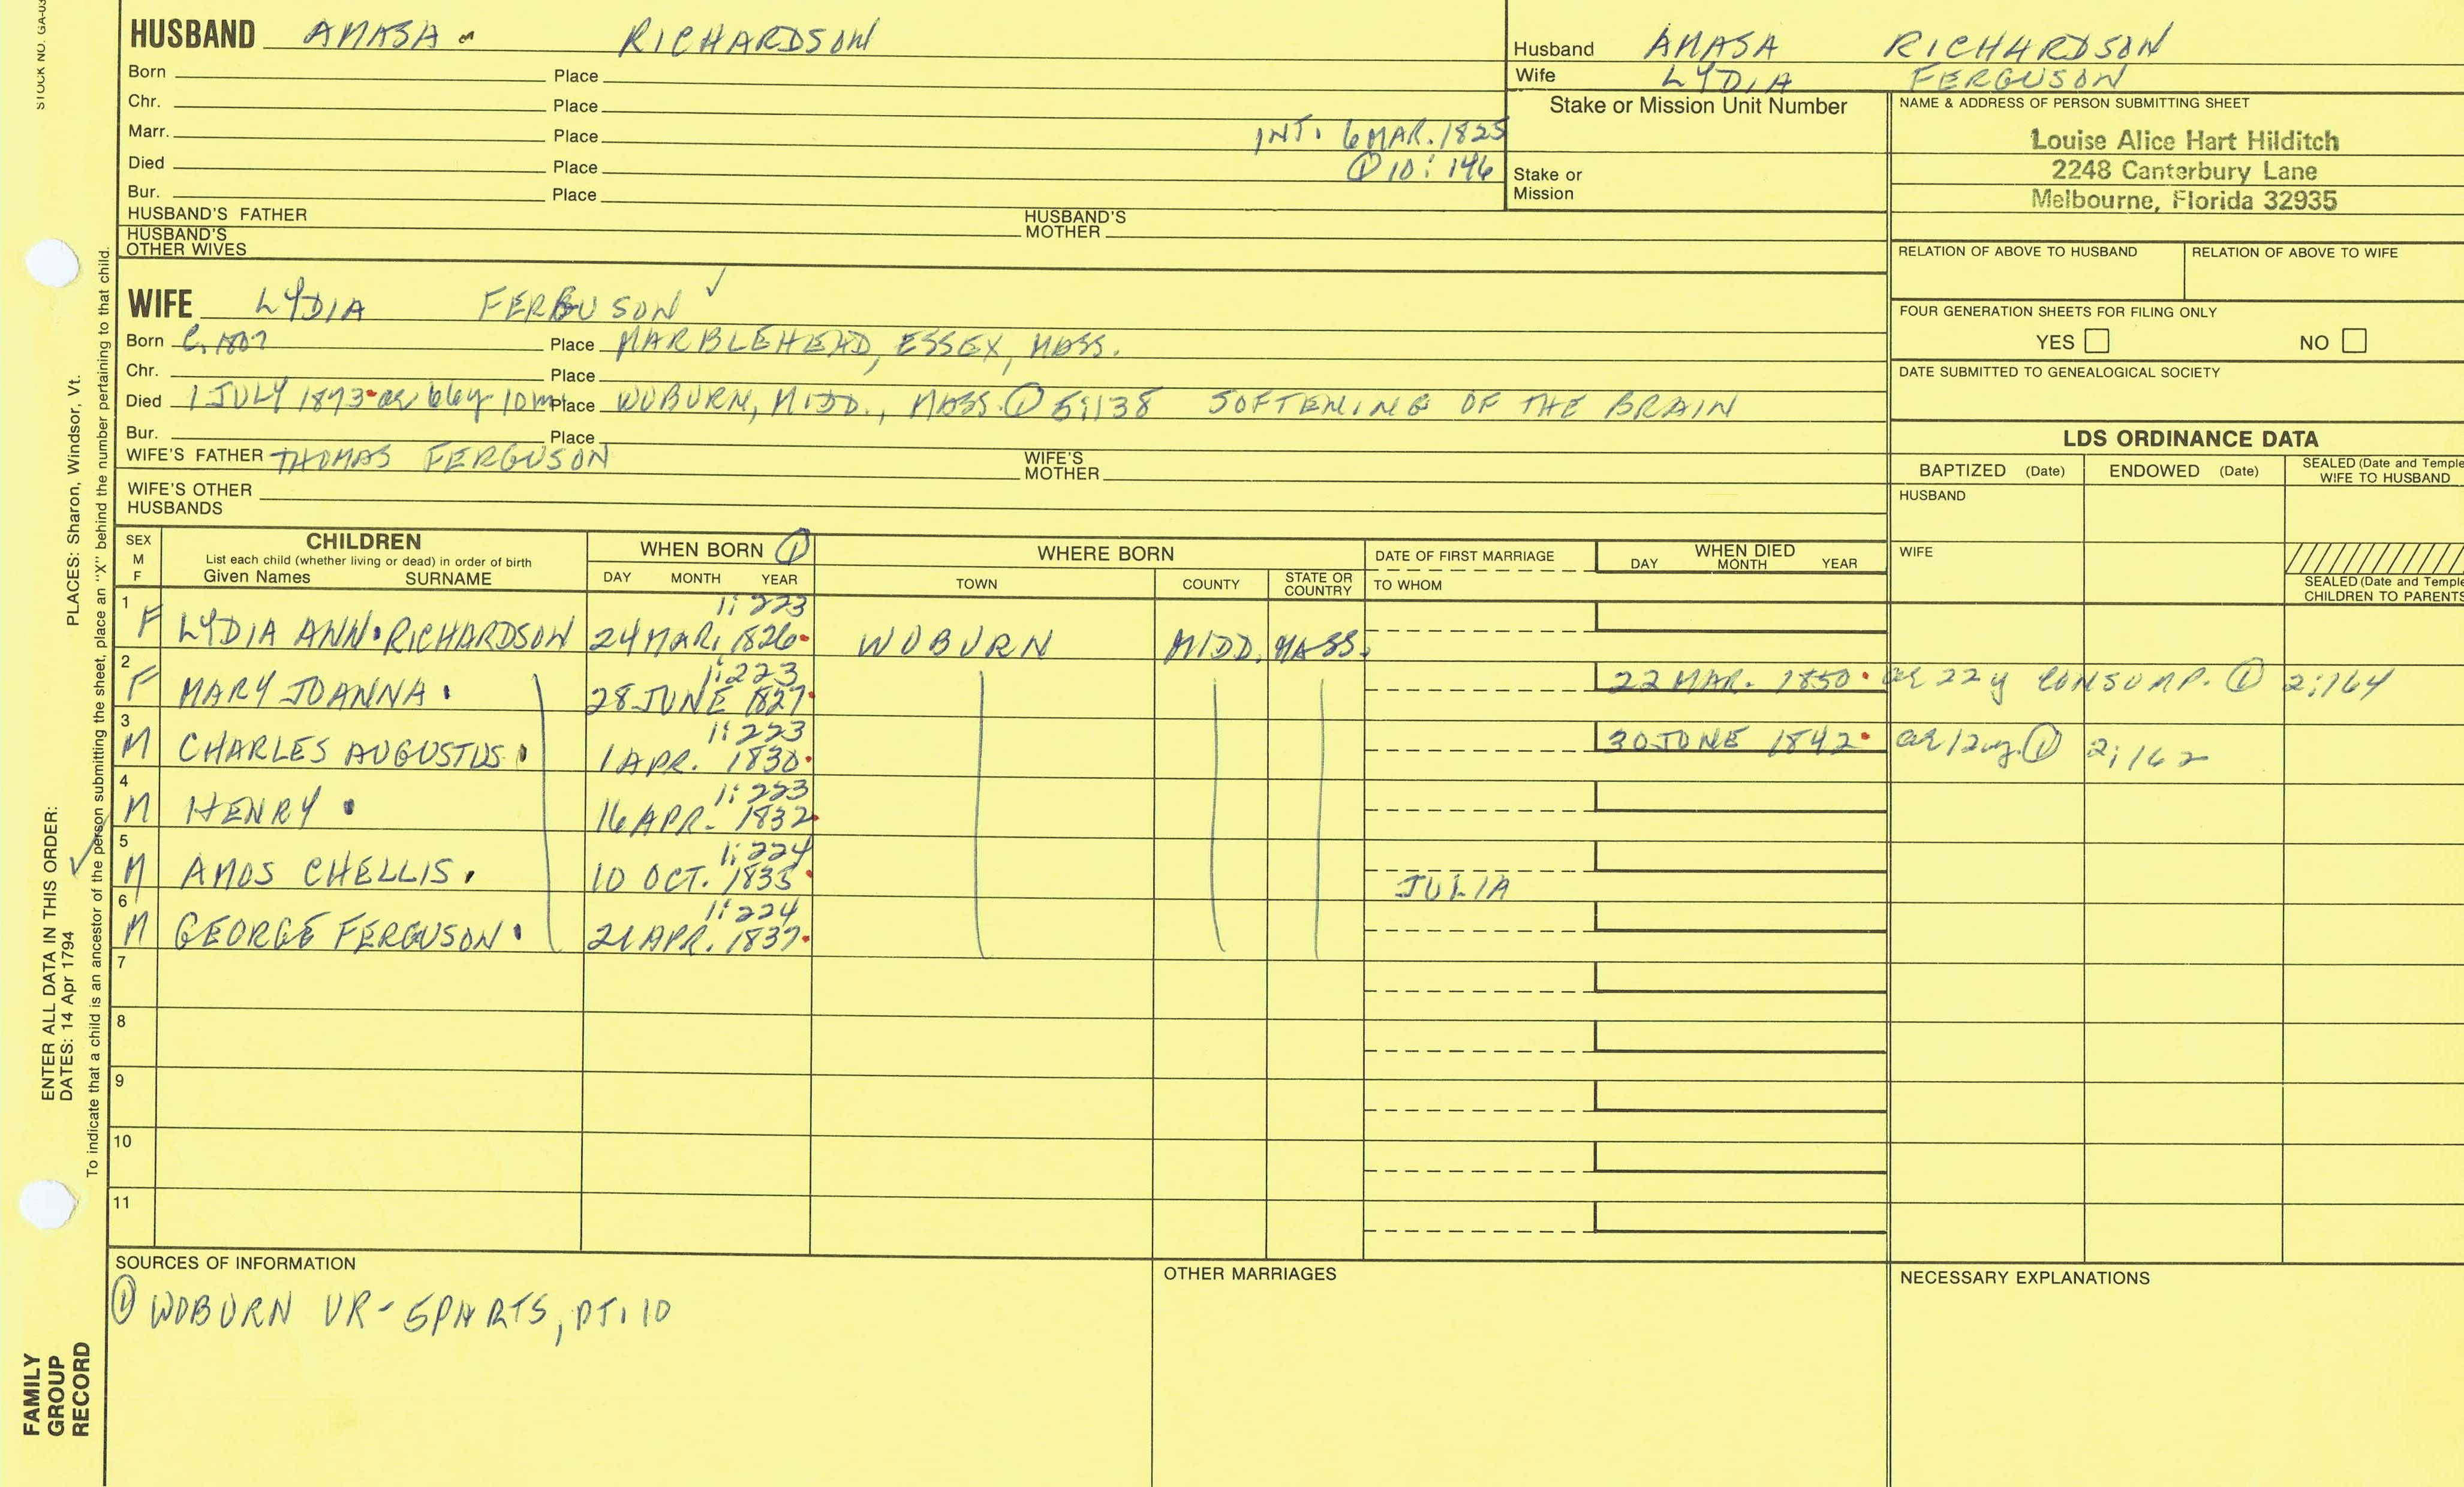 STOCK NO. GA-03
HUSBAND AMASA RICHARDSON
Born Place
Chr. Place
Marr. Place INT. 6 MAR. 1825
Died Place ① 10:146
Bur. Place
HUSBAND'S FATHER HUSBAND'S MOTHER
HUSBAND'S OTHER WIVES
Husband AMASA RICHARDSON
Wife LYDIA FERGUSON
Stake or Mission Unit Number
Stake or
Mission
NAME & ADDRESS OF PERSON SUBMITTING SHEET
Louise Alice Hart Hilditch
2248 Canterbury Lane
Melbourne, Florida 32935
RELATION OF ABOVE TO HUSBAND RELATION OF ABOVE TO WIFE
FOUR GENERATION SHEETS FOR FILING ONLY
YES NO
DATE SUBMITTED TO GENEALOGICAL SOCIETY
WIFE LYDIA FERGUSON ✓
Born C. 1807 Place MARBLEHEAD, ESSEX, MASS.
Chr. Place
Died 1 JULY 1873 ae 66y 10m Place WOBURN, MIDD., MASS. ① 5:138 SOFTENING OF THE BRAIN
Bur. Place
WIFE'S FATHER THOMAS FERGUSON WIFE'S MOTHER
WIFE'S OTHER HUSBANDS
LDS ORDINANCE DATA
BAPTIZED (Date) ENDOWED (Date) SEALED (Date and Temple
WIFE TO HUSBAND
HUSBAND
WIFE
SEALED (Date and Temple
CHILDREN TO PARENTS
SEX
M
F
CHILDREN
List each child (whether living or dead) in order of birth
Given Names SURNAME
WHEN BORN ①
DAY MONTH YEAR
WHERE BORN
TOWN COUNTY STATE OR COUNTRY
DATE OF FIRST MARRIAGE
TO WHOM
WHEN DIED
DAY MONTH YEAR
1 1:223
F LYDIA ANN RICHARDSON 24 MAR. 1826 WOBURN MIDD. MASS.
2 1:223
F MARY JOANNA 28 JUNE 1827 22 MAR. 1850 ae 22y CONSUMP. ① 2:164
3 1:223
M CHARLES AUGUSTUS 1 APR. 1830 30 JUNE 1842 ae 12y. ① 2:162
4 1:223
M HENRY 16 APR. 1832
5 1:224
M AMOS CHELLIS 10 OCT. 1835 JULIA
6 1:224
M GEORGE FERGUSON 21 APR. 1837
7
8
9
10
11
SOURCES OF INFORMATION
① WOBURN VR - 5 PARTS, PT. 10
OTHER MARRIAGES
NECESSARY EXPLANATIONS
ENTER ALL DATA IN THIS ORDER:
PLACES: Sharon, Windsor, Vt.
DATES: 14 Apr 1794
To indicate that a child is an ancestor of the person submitting the sheet, place an "X" behind the number pertaining to that child.
FAMILY
GROUP
RECORD